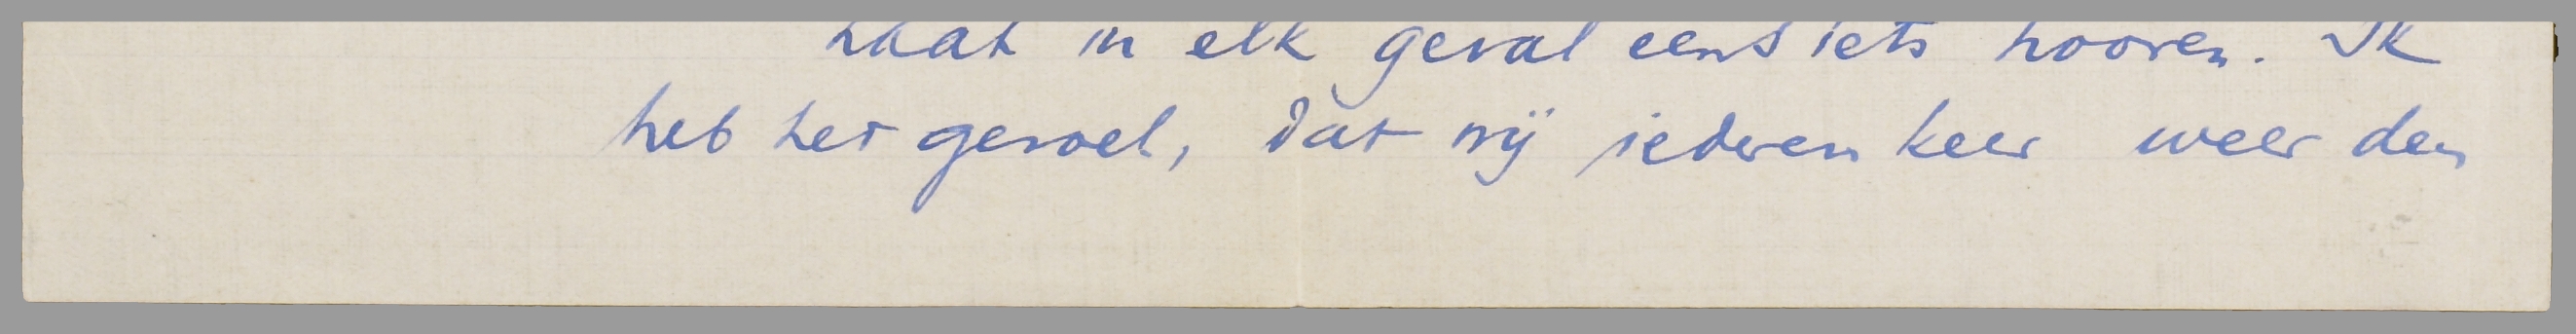 Laat in elk geval eens iets hooren. Ik
heb het gevoel, dat wij iederen keer weer den